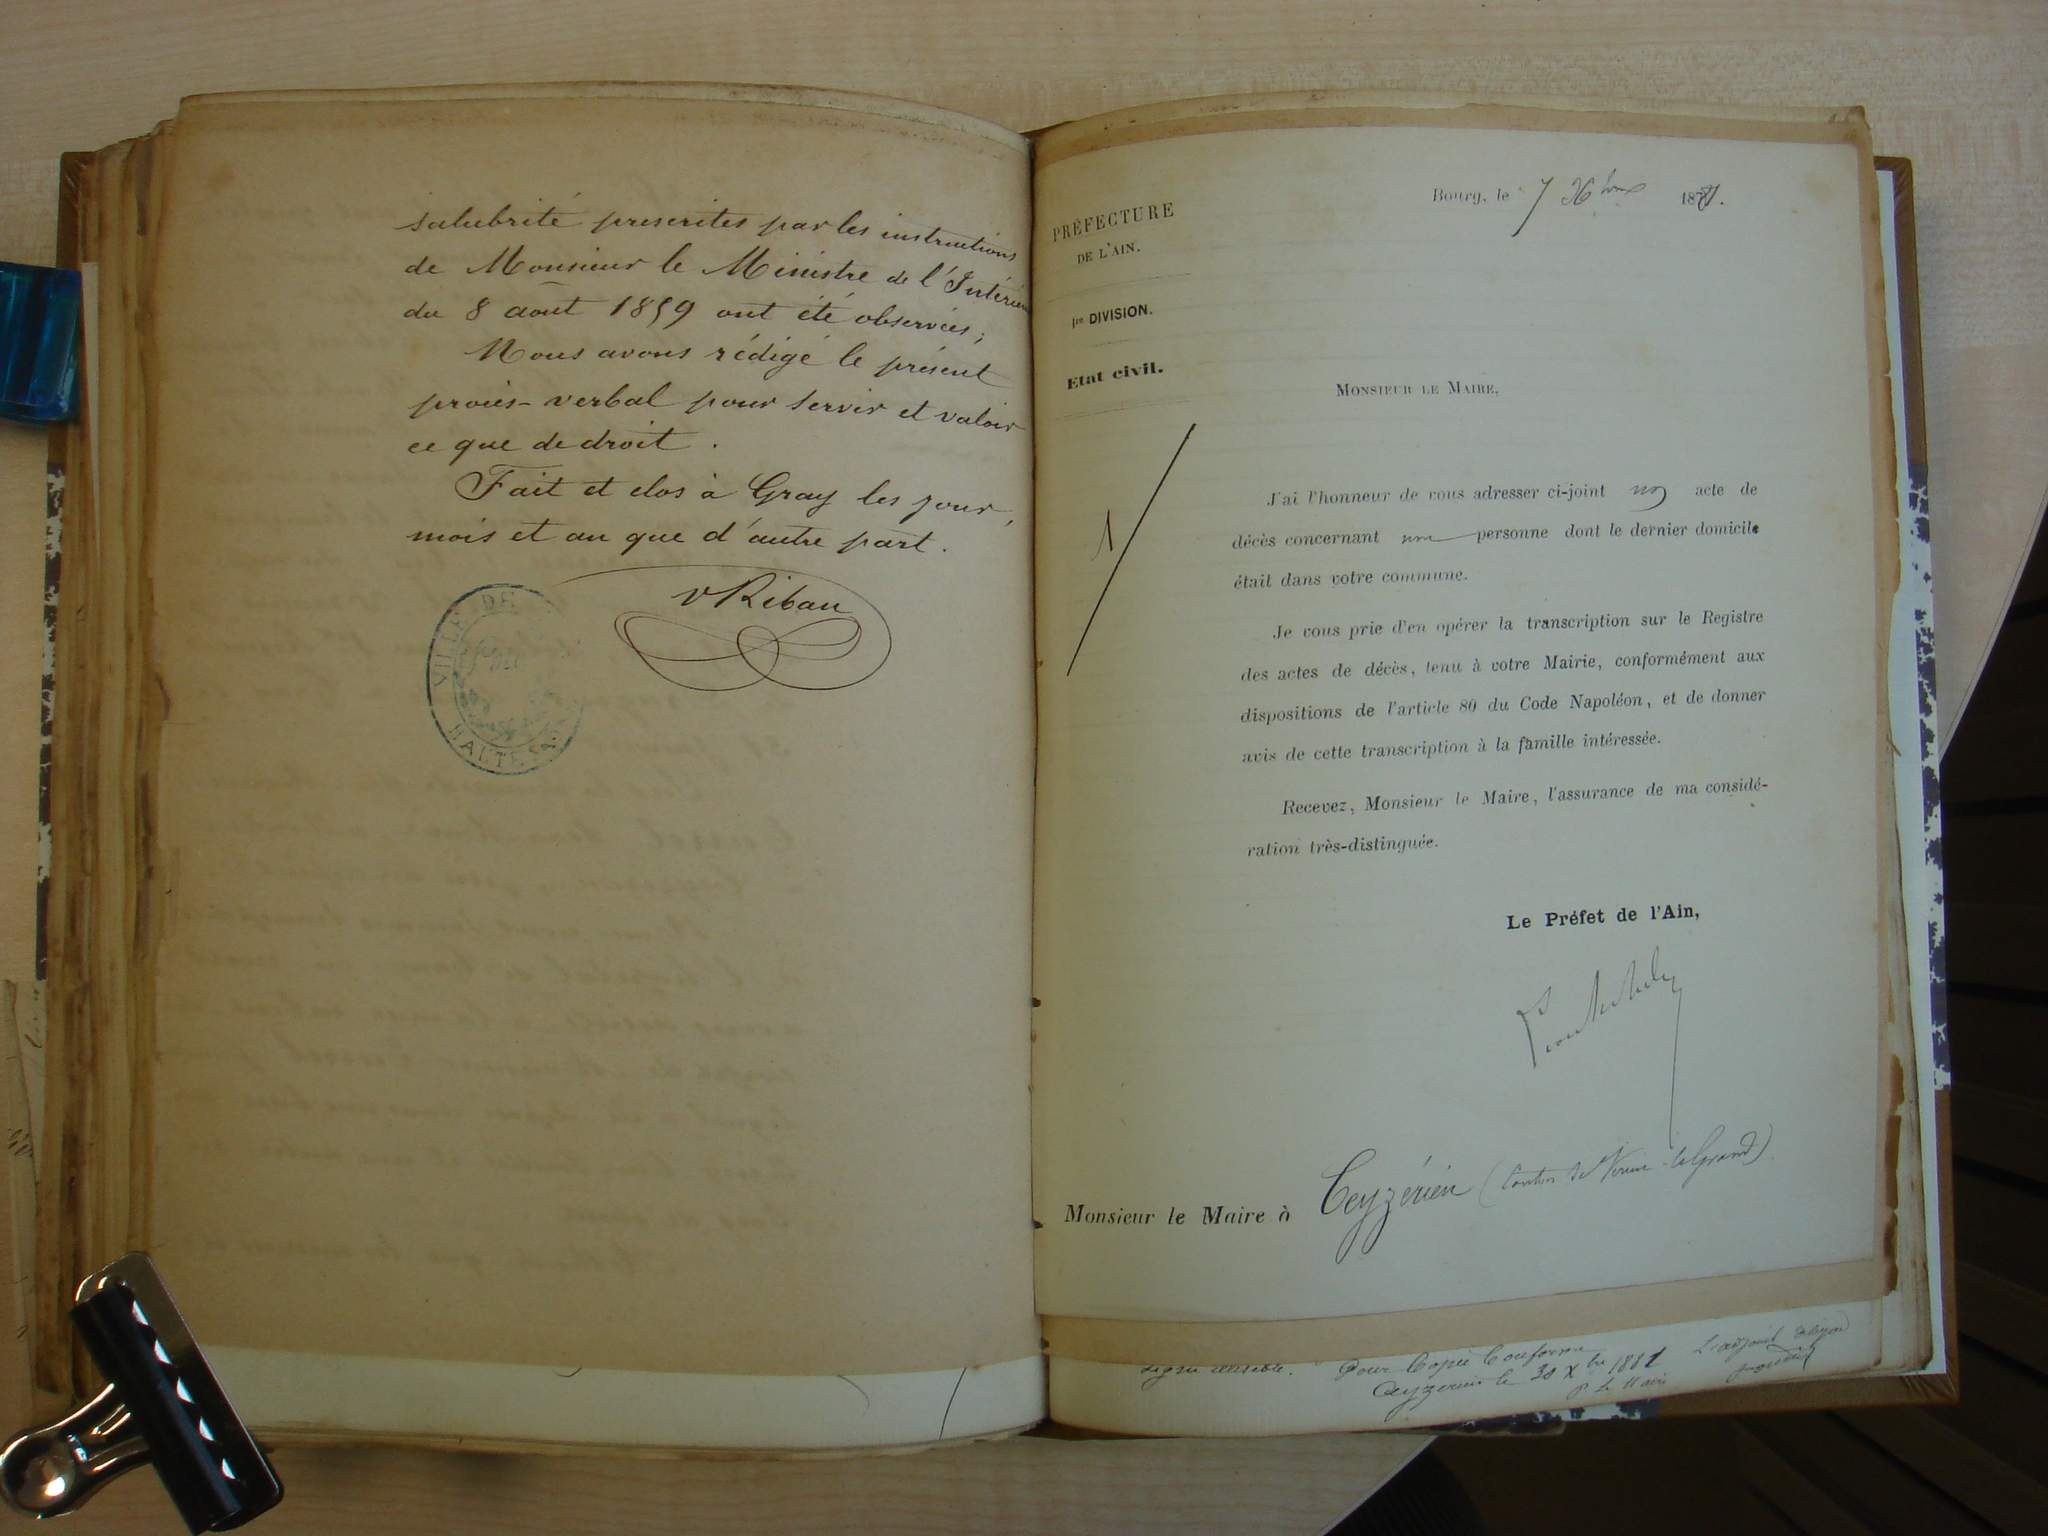 salubrité prescrites par les instructions
de Monsieur le Ministre de l'Intérieur
du 8 août 1859 ont été observées;
Nous avons rédigé le présent
procès-verbal pour servir et valoir
ce que de droit.
Fait et clos à Gray les jour,
mois et an que d'autre part.
VILLE DE
HAUTE
PRÉFECTURE
DE L'AIN.
1re DIVISION.
Etat civil.
1
Bourg, le 7 Xbre 18
MONSIEUR LE MAIRE,
J'ai l'honneur de vous adresser ci-joint un acte de
décès concernant une personne dont le dernier domicile
était dans votre commune.
Je vous prie d'en opérer la transcription sur le Registre
des actes de décès, tenu à votre Mairie, conformément aux
dispositions de l'article 80 du Code Napoléon, et de donner
avis de cette transcription à la famille intéressée.
Recevez, Monsieur le Maire, l'assurance de ma considé-
ration très-distinguée.
Le Préfet de l'Ain,
Monsieur le Maire à Ceyzérieu (Canton de Virieu-le-Grand)
Pour Copie Conforme
Ceyzérieu le 30 Xbre 1881
P. le Maire
L'adjoint délégué